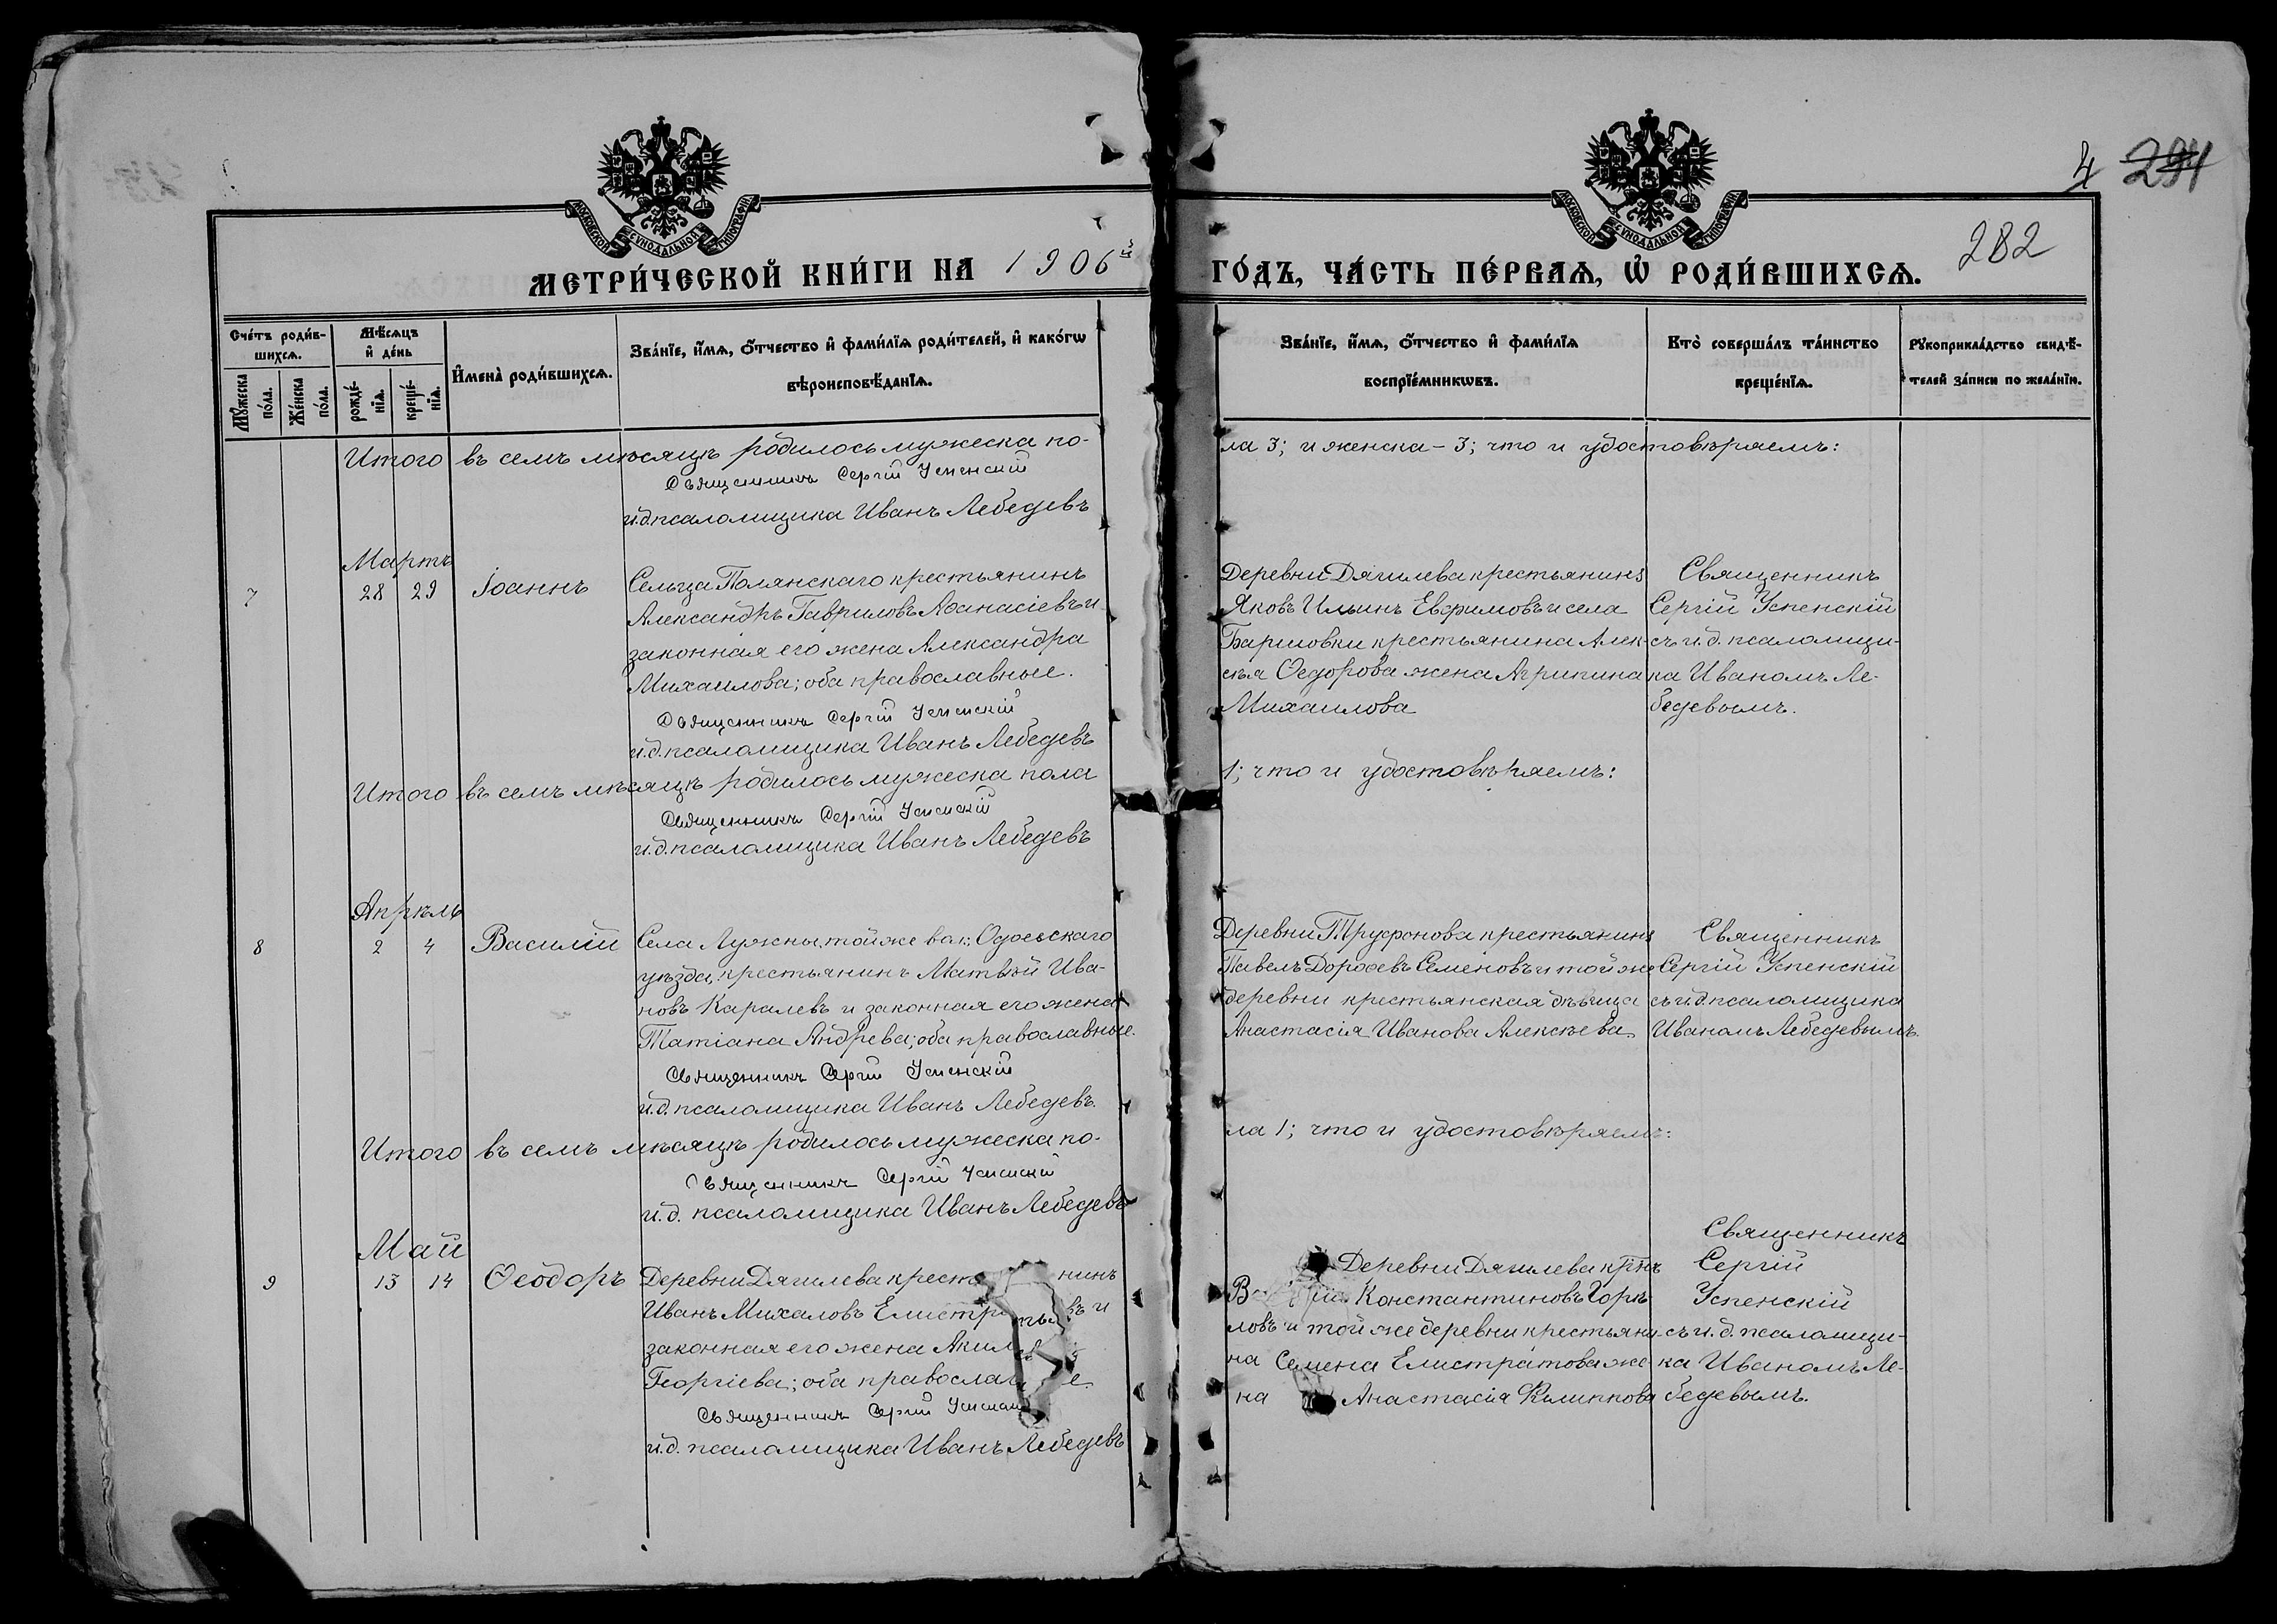 4 294
282
МОСКОВСКОЙ СѴНОДАЛЬНОЙ ТИПОГРАФІИ
МОСКОВСКОЙ СѴНОДАЛЬНОЙ ТИПОГРАФІИ
МЕТРИ́ЧЕСКОЙ КНИ́ГИ НА 1906й ГО́ДЪ, ЧА́СТЬ ПЕ́РВАѦ, Ѡ҆ РОДИ́ВШИХСѦ.
Сче́тъ роди́вшихсѧ.
Мꙋ́жеска по́ла.
Же́нска по́ла.
Мѣ́сѧцъ и҆ де́нь
рожде́нїѧ.
креще́нїѧ.
И҆мена̀ роди́вшихсѧ.
Зва́нїе, и҆́мѧ, ѻ҆́тчество и҆ фамѝлїѧ роди́телей, и҆ како́гѡ
вѣроисповѣ́данїѧ.
Зва́нїе, и҆́мѧ, ѻ҆́тчество и҆ фами́лїѧ
воспрїе́мникѡвъ.
Кто̀ соверша́лъ та́инство
креще́нїѧ.
Рꙋкоприкла́дство свидѣ́-
телей за́писи по жела́нїю.
Итого въ семъ мѣсяцѣ родилось мужеска по-
ла 3; и женска - 3; что и удостовѣряемъ:
Священникъ Сергій Успенскій
и.д. псаломщика Иванъ Лебедевъ
Мартъ
7 28 29 Іоаннъ
Сельца Полянскаго крестьянинъ
Александръ Гавриловъ Аѳанасіевъ и
законная его жена Александра
Михаилова; оба православные.
Священникъ Сергій Успенскій
и.д. псаломщика Иванъ Лебедевъ
Деревни Дягилева крестьянинъ
Яковъ Ильинъ Евфимовъ и села
Баршовки крестьянина Алек-
сѣя Ѳедорова жена Агрипина
Михаилова
Священникъ
Сергій Успенскій
съ и.д. псаломщи-
ка Иваномъ Ле-
бедевымъ.
Итого въ семъ мѣсяцѣ родилось мужеска пола
1; что и удостовѣряемъ:
Священникъ Сергій Успенскій
и.д. псаломщика Иванъ Лебедевъ
Апрѣль
8 2 4 Василій
Села Лужны, той же вол., Одоевскаго
уѣзда, крестьянинъ Матвѣй Ива-
новъ Каралевъ и законная его жена
Татіана Андрева; оба православные.
Священникъ Сергій Успенскій
и.д. псаломщика Иванъ Лебедевъ.
Деревни Труфонова крестьянинъ
Павелъ Дороѳевъ Семеновъ и той же
деревни крестьянская дѣвица
Анастасія Иванова Алексѣева
Священникъ
Сергій Успенскій
съ и.д. псаломщика
Иваномъ Лебедевымъ.
Итого въ семъ мѣсяцѣ родилось мужеска по-
ла 1; что и удостовѣряемъ:
Священникъ Сергій Успенскій
и.д. псаломщика Иванъ Лебедевъ
Май
9 13 14 Ѳеодоръ
Деревни Дягилева крест нинъ
Иванъ Михаловъ Елистратьевъ и
законная его жена
Георгіева; оба православ е.
Священникъ Сергій Успенскій
и.д. псаломщика Иванъ Лебедевъ
Деревни Дягилева крт҃нъ
Константиновъ Горѣ-
ловъ и той же деревни крестьяни-
на Семена Елистратова же-
на Анастасія Филиппова
Священникъ
Сергій
Успенскій
съ и.д. псаломщи-
ка Иваномъ Ле-
бедевымъ.